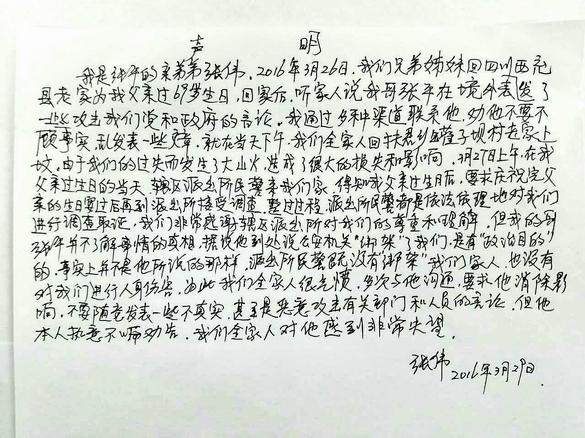 声 明
我是张平的亲弟弟张伟。2016年3月26日，我们兄弟姊妹回四川西充
县老家为我父亲过69岁生日，回家后，听家人说我哥张平在境外表发了
一些攻击我们党和政府的言论。我通过多种渠道联系他，劝他不要不
顾事实，乱发表一些文章，就在当天下午，我们全家人回扶君乡 村去家上
坟，由于我们的过失而发生了大山火，造成了很大的损失和影响。3月27日上午，在我
父亲过生日的当天，辖区派出所民警来我们家，得知我父亲过生日后，要求庆祝完父
亲的生日宴过后再到派出所接受调查，整过过程，派出所民警都是依法依理地对我们
进行调查取证，我们非常感谢辖区派出所对我们的尊重和理解，但我的哥
张平并不了解事情的真相，据说他到处说公安机关"绑架"了我们，是有"政治目的"
的，事实上并不是他所说的那样，派出所民警既没有"绑架"我们家人，也没有
对我们进行人身伤害，为此我们全家人很气愤，多次与他沟通，要求他消除影
响，不要随意发表一些不真实，甚至是恶意攻击有关部门和人员的言论，但他
本人执意不听劝告，我们全家人对他感到非常失望。
张伟
2016年3月29日.